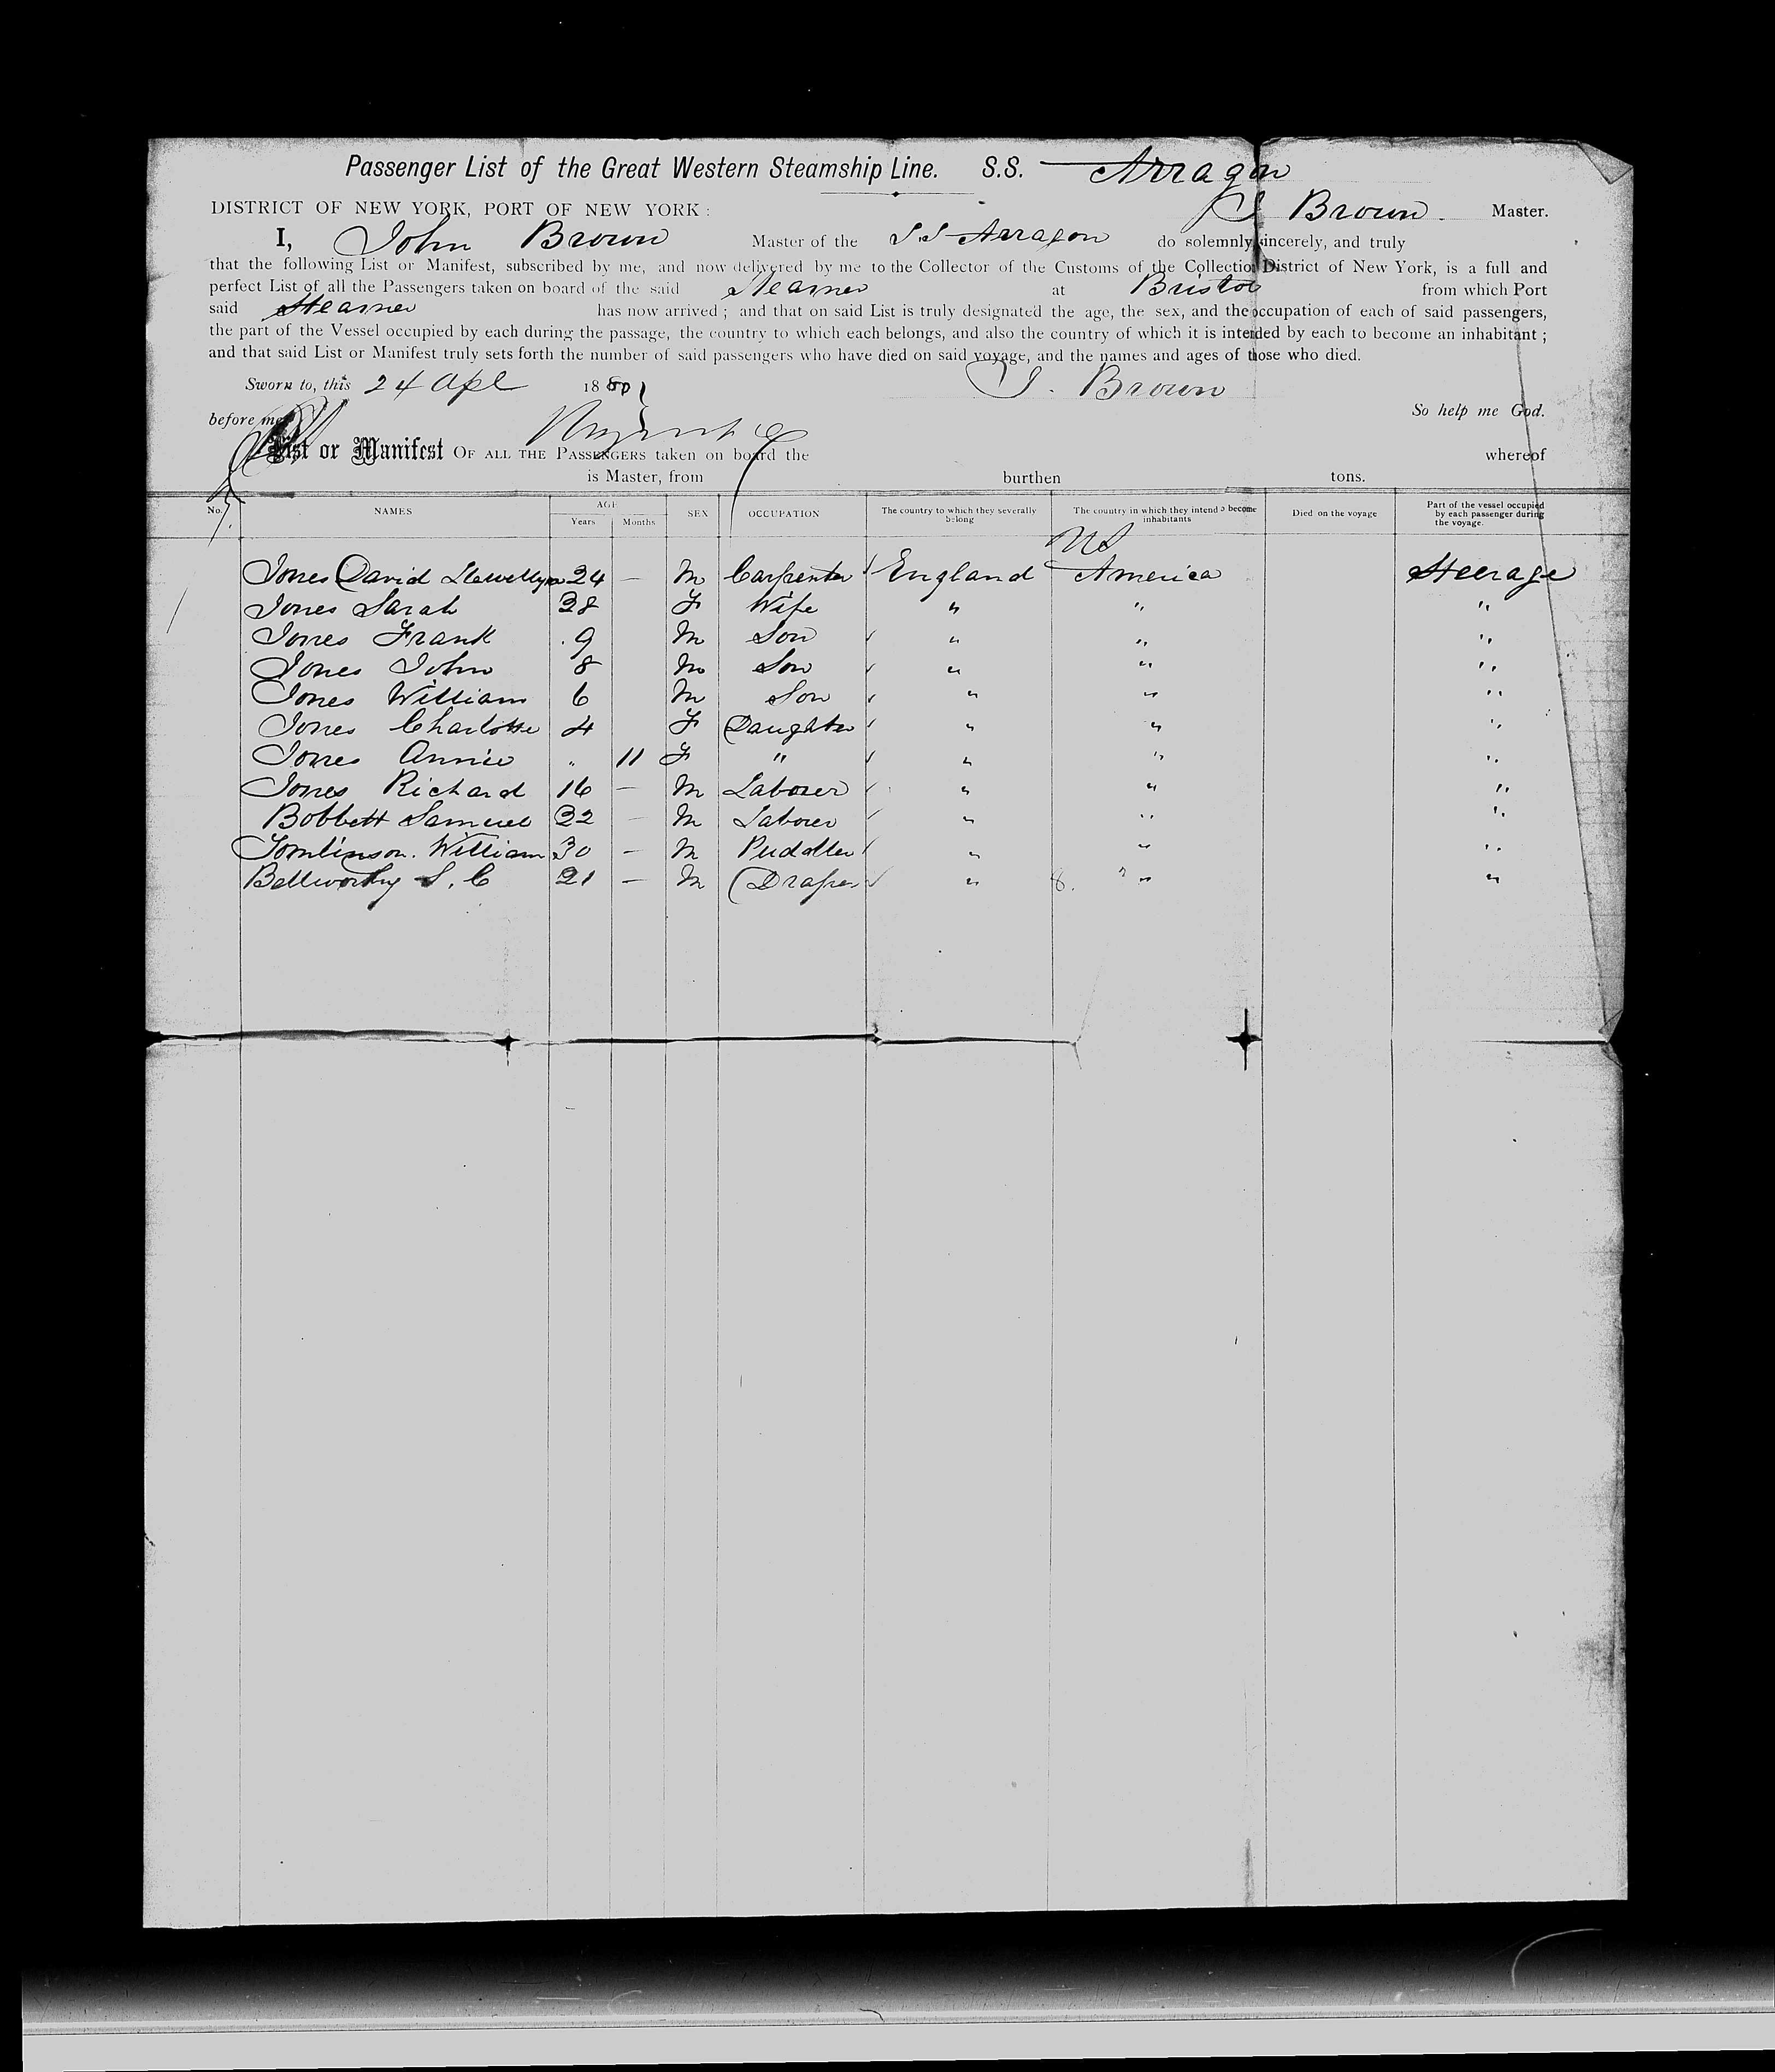 Passenger List of the Great Western Steamship Line. S.S. Arragon
DISTRICT OF NEW YORK, PORT OF NEW YORK : J Brown. Master.
I, John Brown Master of the S.S Arragon do solemnly, sincerely, and truly
that the following List or Manifest, subscribed by me, and now delivered by me to the Collector of the Customs of the Collection District of New York, is a full and
perfect List of all the Passengers taken on board of the said Steamer at Bristol from which Port
said Steamer has now arrived ; and that on said List is truly designated the age, the sex, and the occupation of each of said passengers,
the part of the Vessel occupied by each during the passage, the country to which each belongs, and also the country of which it is intended by each to become an inhabitant ;
and that said List or Manifest truly sets forth the number of said passengers who have died on said voyage, and the names and ages of those who died.
Sworn to, this 24 Apl 1880 J. Brown
before me So help me God.
List or Manifest OF ALL THE PASSENGERS taken on board the whereof
is Master, from burthen tons.
No. NAMES AGE Years Months SEX OCCUPATION The country to which they severally belong The country in which they intend to become inhabitants Died on the voyage Part of the vessel occupied by each passenger during the voyage.
US
Jones David Llewellyn 24 — M Carpenter England America Steerage
Jones Sarah 28 F Wife " " "
Jones Frank 9 M Son " " "
Jones John 8 M Son " " "
Jones William 6 M Son " " "
Jones Charlotte 4 F Daughter " " "
Jones Annie " 11 F " " " "
Jones Richard 16 — M Laborer " " "
Bobbett Samuel 22 — M Laborer " " "
Tomlinson. William 30 — M Puddler " " "
Bellworthy S. C 21 — M Draper " " "